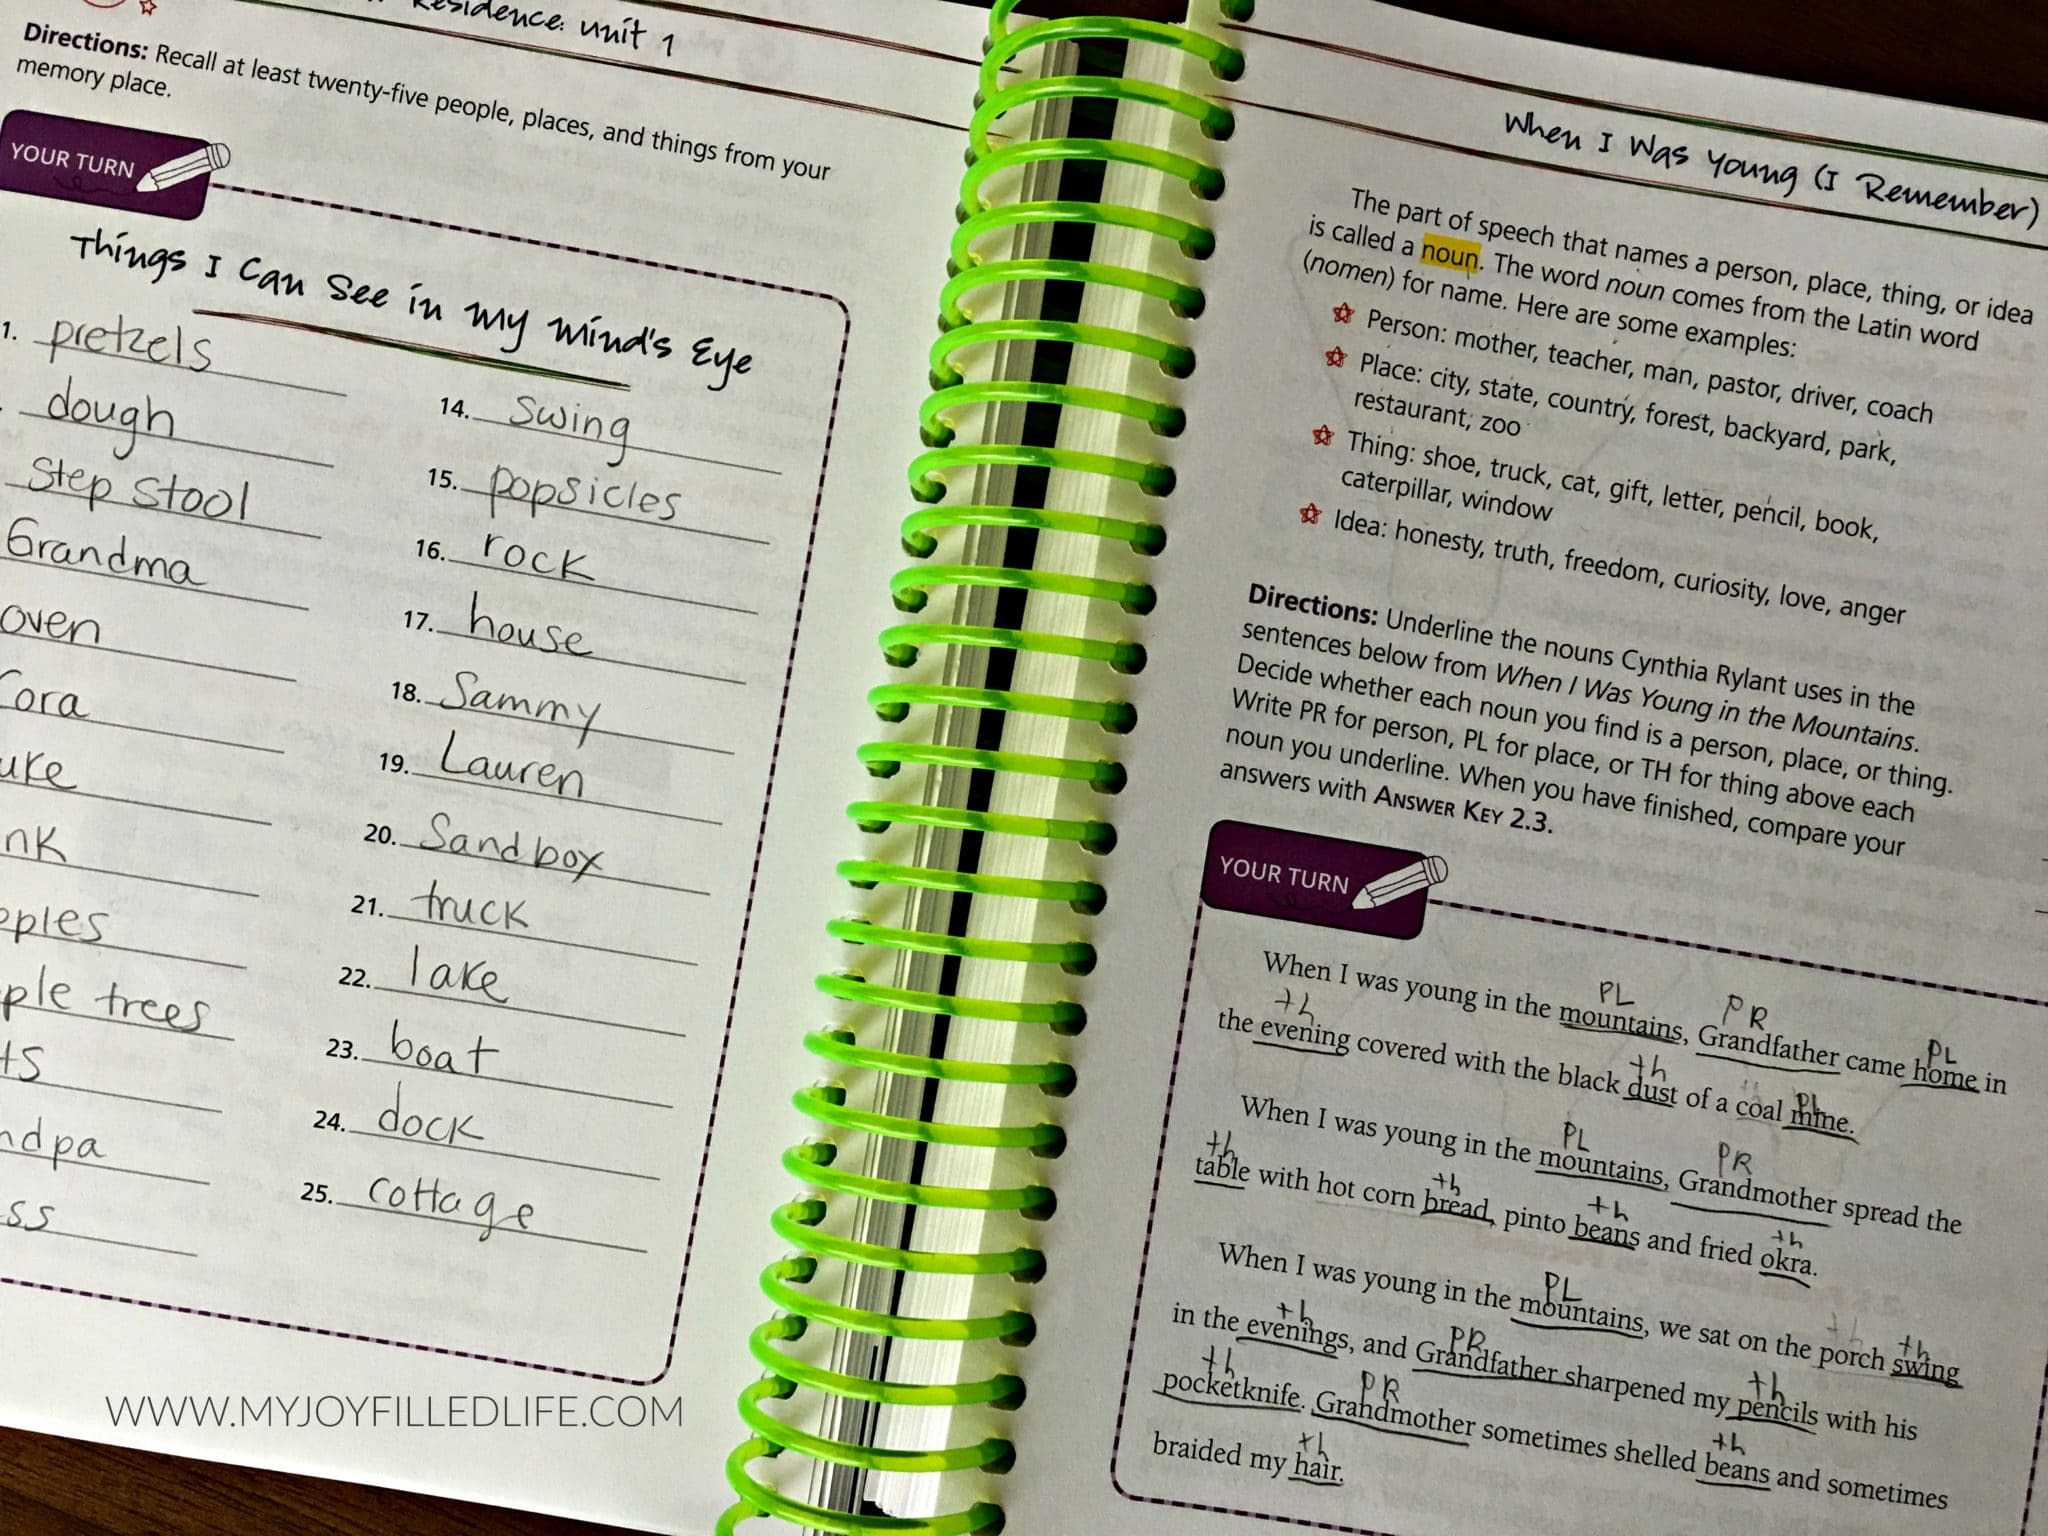 Residence: Unit 1
Directions: Recall at least twenty-five people, places, and things from your
memory place.
YOUR TURN
Things I Can See in My Mind's Eye
1. pretzels
dough
step stool
Grandma
oven
Cora
apple trees
14. swing
15. popsicles
16. rock
17. house
18. Sammy
19. Lauren
20. Sandbox
21. truck
22. lake
23. boat
24. dock
25. cottage
WWW.MYJOYFILLEDLIFE.COM
When I Was Young (I Remember)
The part of speech that names a person, place, thing, or idea
is called a noun. The word noun comes from the Latin word
(nomen) for name. Here are some examples:
Person: mother, teacher, man, pastor, driver, coach
Place: city, state, country, forest, backyard, park,
restaurant, zoo
Thing: shoe, truck, cat, gift, letter, pencil, book,
caterpillar, window
Idea: honesty, truth, freedom, curiosity, love, anger
Directions: Underline the nouns Cynthia Rylant uses in the
sentences below from When I Was Young in the Mountains.
Decide whether each noun you find is a person, place, or thing.
Write PR for person, PL for place, or TH for thing above each
noun you underline. When you have finished, compare your
answers with ANSWER KEY 2.3.
YOUR TURN
PL PR
When I was young in the mountains, Grandfather came home in
th th PL
the evening covered with the black dust of a coal mine.
PL
PL PR
When I was young in the mountains, Grandmother spread the
th th th th
table with hot corn bread, pinto beans and fried okra.
PL
When I was young in the mountains, we sat on the porch swing
th PR th th th
in the evenings, and Grandfather sharpened my pencils with his
th PR
pocketknife. Grandmother sometimes shelled beans and sometimes
th th
braided my hair.